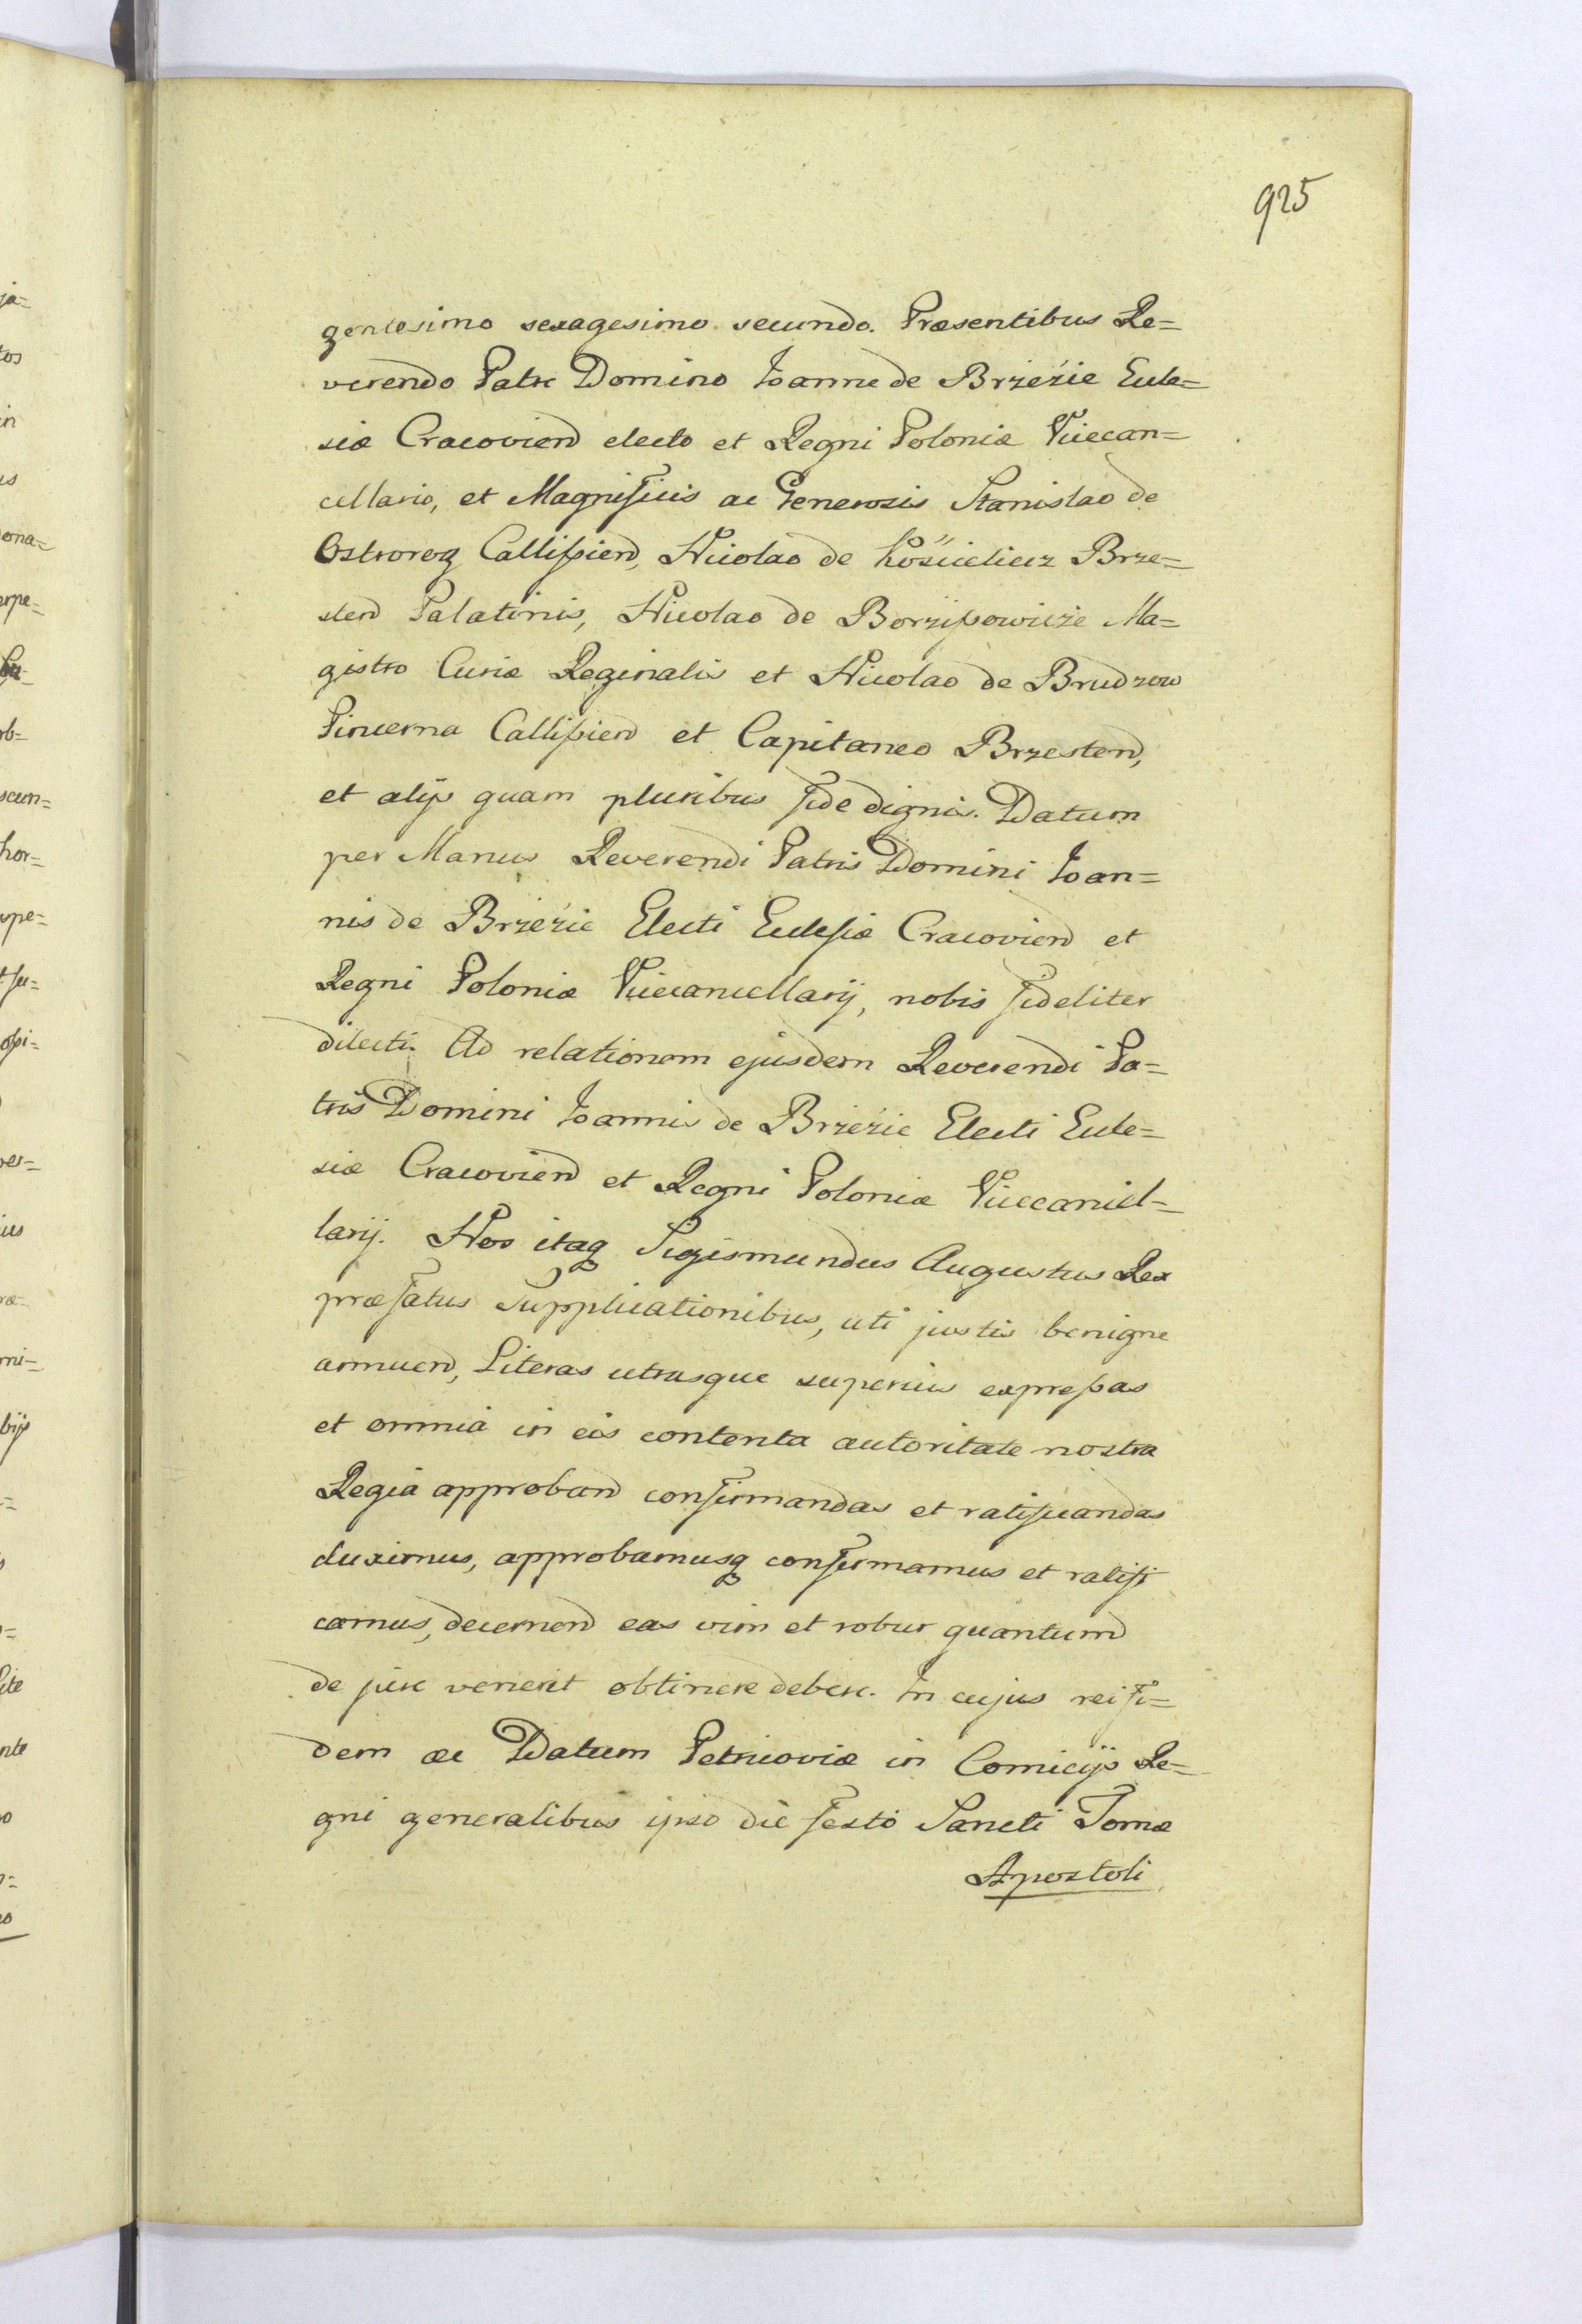 925
gentesimo sexagesimo secundo. Præsentibus Re=
verendo Patre Domino Ioanne de Brzezie Eccle=
siæ Cracovien electo et Regni Poloniæ Vicecan=
cellario, et Magnificis ac Generosis Stanislao de
Ostrorog Callissien, Nicolao de Kościelicz Brze=
sten Palatinis, Nicolao de Borzissowicze Ma=
gistro Curiæ Reginalis et Nicolao de Brudzow
Pincerna Callissien et Capitaneo Brzesten,
et alijs quam pluribus fide dignis. Datum
per Manus Reverendi Patris Domini Ioan=
nis de Brzezie Electi Ecclesiæ Cracovien et
Regni Poloniæ Vicecancellarij, nobis fideliter
dilecti. Ad relationem ejusdem Reverendi Pa=
tris Domini Ioannis de Brzezie Electi Eccle=
siæ Cracovien et Regni Poloniæ Vicecancel=
larij. Nos itaq Sigismundus Augustus Rex
præfatus Supplicationibus, uti justis benigne
annuen, Literas utrasque superius expressas
et omnia in eis contenta autoritate nostra
Regia approband confirmandas et ratificandas
duximus, approbamusq confirmamus et ratifi
camus, decernen eas vim et robur quantum
de jure venerit obtinere debere. In cujus rei fi=
dem æc Datum Petricoviæ in Comicijs Re=
gni generalibus ipso die festo Sancti Tomæ
Apostoli